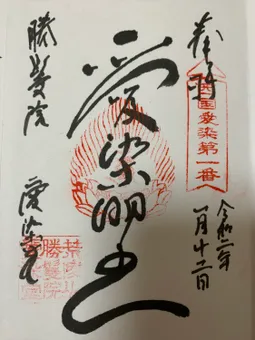 奉拝
西国愛染第一番
令和二年
一月十二日
愛染明王
勝鬘院
愛染堂
荒陵山
勝鬘院
愛染堂